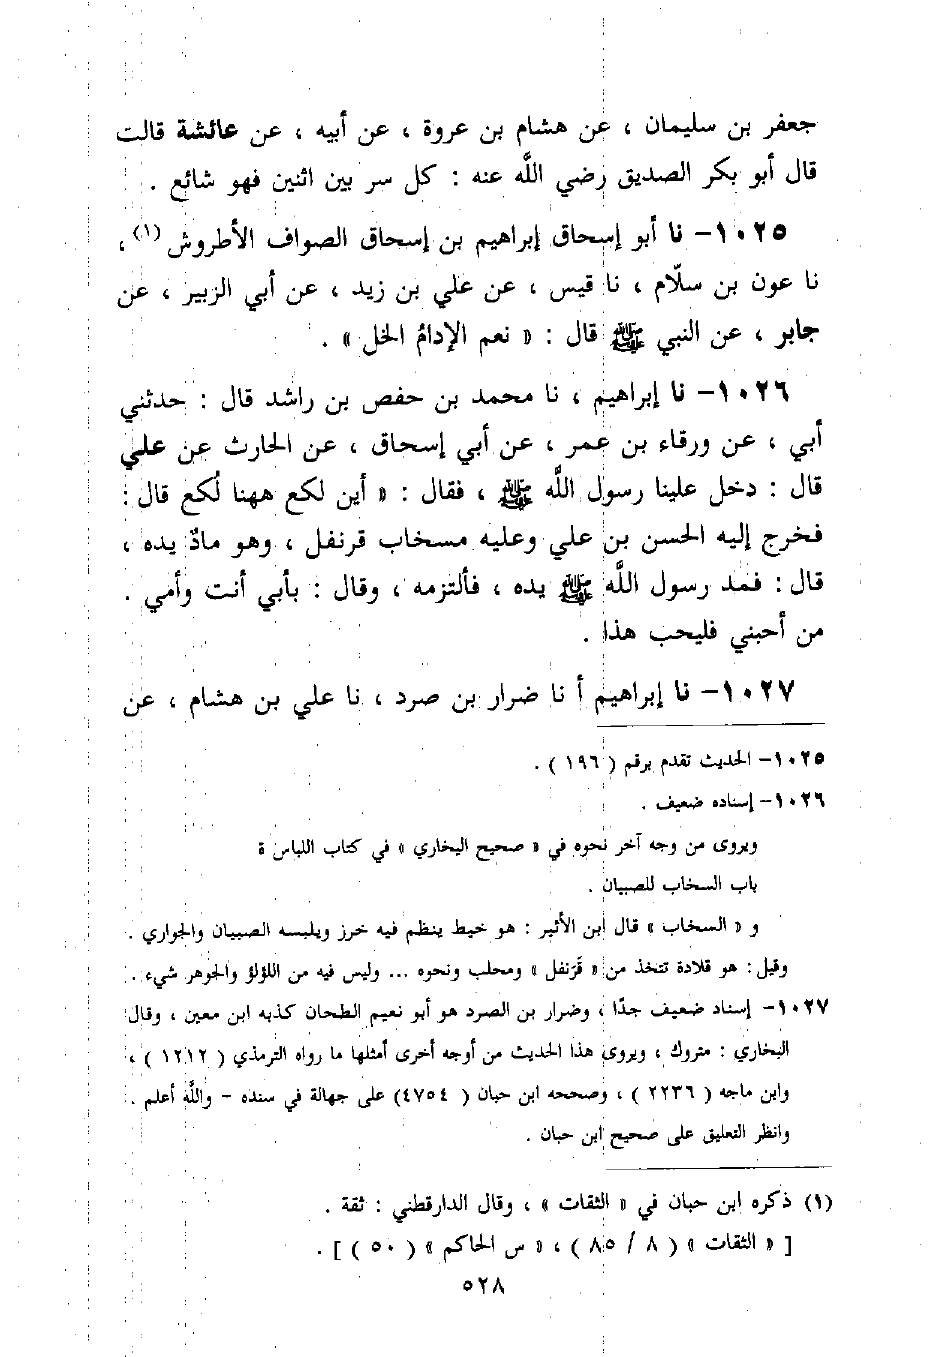 جعفر بن سليمان ، عن هشام بن عروة ، عن أبيه ، عن عائشة قالت
قال أبو بكر الصديق رضي اللَّه عنه : كل سر بين اثنين فهو شائع .
١٠٢٥- نا أبو إسحاق إبراهيم بن إسحاق الصواف الأطروش (١) ،
نا عون بن سلّام ، نا قيس ، عن علي بن زيد ، عن أبي الزبير ، عن
جابر ، عن النبي ﷺ قال : « نعم الإدامُ الخل » .
١٠٢٦- نا إبراهيم ، نا محمد بن حفص بن راشد قال : حدثني
أبي ، عن ورقاء بن عمر ، عن أبي إسحاق ، عن الحارث عن علي
قال : دخل علينا رسول اللَّه ﷺ ، فقال : « أين لكع ههنا لُكع قال :
فخرج إليه الحسن بن علي وعليه مسخاب قرنفل ، وهو مادٌ يده ،
قال : فمد رسول اللَّه ﷺ يده ، فألتزمه ، وقال : بأبي أنت وأمي .
من أحبني فليحب هذا .
١٠٢٧- نا إبراهيم أ نا ضرار بن صرد ، نا علي بن هشام ، عن
١٠٢٥- الحديث تقدم برقم ( ١٩٦ ) .
١٠٢٦- إسناده ضعيف .
ويروى من وجه آخر نحوه في « صحيح البخاري » في كتاب اللباس ة
باب السخاب للصبيان .
و « السخاب » قال ابن الأثير : هو خيط ينظم فيه خرز ويلبسه الصبيان والجواري .
وقيل : هو قلادة تتخذ من « قَرَنفل » ومحلب ونحوه ... وليس فيه من اللؤلؤ والجوهر شيء .
١٠٢٧- إسناد ضعيف جدًا ، وضرار بن الصرد هو أبو نعيم الطحان كذبه ابن معين ، وقال
البخاري : متروك ، ويروى هذا الحديث من أوجه أخرى أمثلها ما رواه الترمذي ( ١٢١٢ ) ،
وابن ماجه ( ٢٢٣٦ ) ، وصححه ابن حبان ( ٤٧٥٤) على جهالة في سنده - واللَّه أعلم .
وانظر التعليق على صحيح ابن حبان .
(١) ذكره ابن حبان في « الثقات » ، وقال الدارقطني : ثقة .
[ « الثقات » ( ٨ / ٨٥ ) ، « س الحاكم » ( ٥٠ ) ] .
٥٢٨